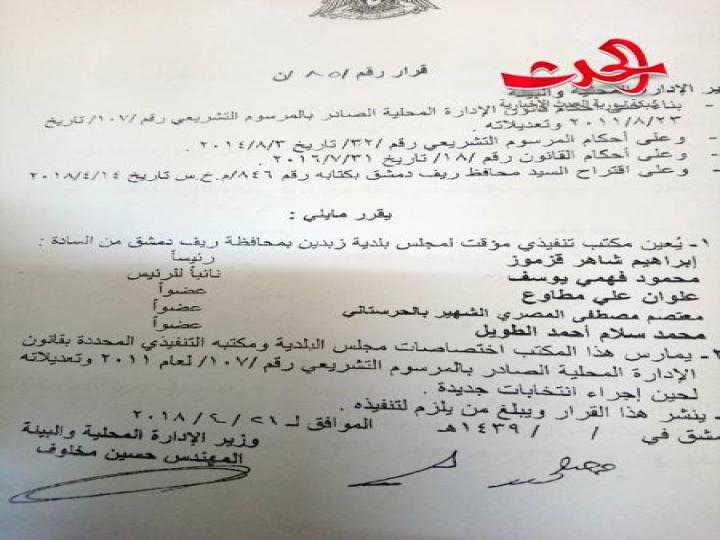 الحدث
شبكة سورية الحدث الإخبارية
قرار رقم /٨٠٥/ن
ير الإدارة المحلية والبيئة
بناء قانون الإدارة المحلية الصادر بالمرسوم التشريعي رقم /١٠٧/ تاريخ
٢٠١١/٨/٢٣ وتعديلاته .
- وعلى أحكام المرسوم التشريعي رقم /٣٢/ تاريخ ٢٠١٤/٨/٣ .
- وعلى أحكام القانون رقم /١٨/ تاريخ ٢٠١٦/٧/٣١ .
- وعلى اقتراح السيد محافظ ريف دمشق بكتابه رقم ٨٤٦/م.خ.س تاريخ ٢٠١٨/٤/١٤
يقرر مايلي :
١- يُعين مكتب تنفيذي مؤقت لمجلس بلدية زبدين بمحافظة ريف دمشق من السادة :
إبراهيم شاهر قزموز رئيساً
محمود فهمي يوسف نائباً للرئيس
علوان علي مطاوع عضواً
معتصم مصطفى المصري الشهير بالحرستاني عضواً
محمد سلام أحمد الطويل عضواً
- يمارس هذا المكتب اختصاصات مجلس البلدية ومكتبه التنفيذي المحددة بقانون
الإدارة المحلية الصادر بالمرسوم التشريعي رقم /١٠٧/ لعام ٢٠١١ وتعديلاته
لحين إجراء انتخابات جديدة .
- ينشر هذا القرار ويبلغ من يلزم لتنفيذه .
مشق في / / ١٤٣٩هـ الموافق لـ ٢٠١٨/٤/٢١
وزير الإدارة المحلية والبيئة
المهندس حسين مخلوف